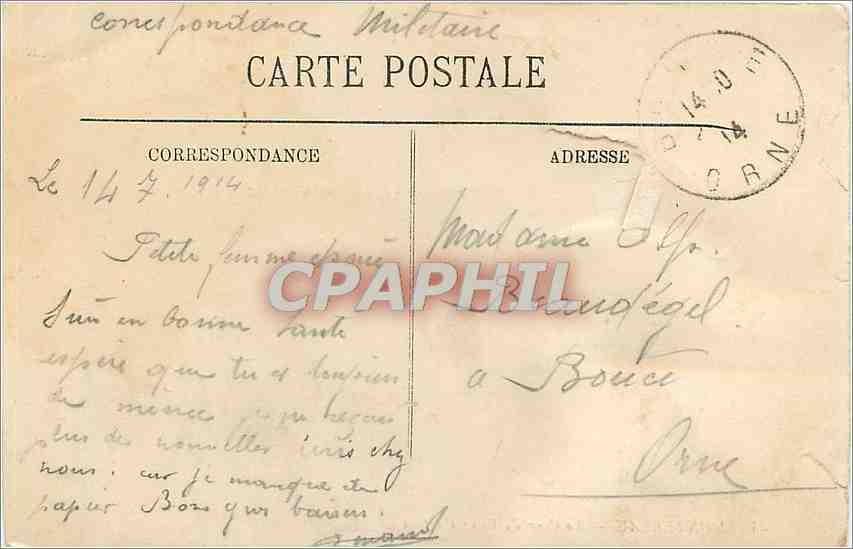 Correspondance Militaire
CARTE POSTALE
14
14
ORNE
CORRESPONDANCE
ADRESSE
Le 14 7. 1914
Petite femme
CPAPHIL
Suis en bonne Santé
espère que tu es toujours
de même
plus des nouvelles chez
nous. car je manque de
papier Bons gros baisers.
Madame Alf.
a Boucé
Orne